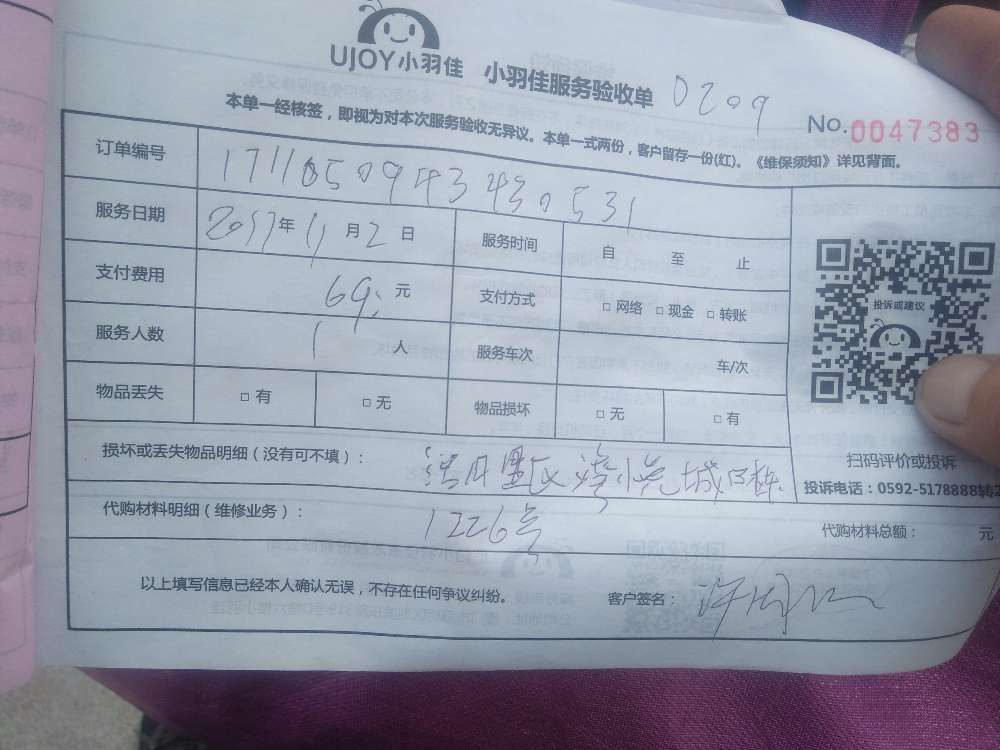 UJOY小羽佳 小羽佳服务验收单 0209
No.0047383
本单一经核签，即视为对本次服务验收无异议。本单一式两份，客户留存一份(红)。《维保须知》详见背面。
订单编号
服务日期 2017年11月2日 服务时间 自 至 止
支付费用 69. 元 支付方式 □ 网络 □ 现金 □ 转账
服务人数 1 人 服务车次 车/次
物品丢失 □ 有 □ 无 物品损坏 □ 无 □ 有
投诉或建议
扫码评价或投诉
投诉电话：0592-5178888转2
损坏或丢失物品明细（没有可不填）：
代购材料明细（维修业务）： 1226号 代购材料总额： 元
以上填写信息已经本人确认无误，不存在任何争议纠纷。 客户签名：